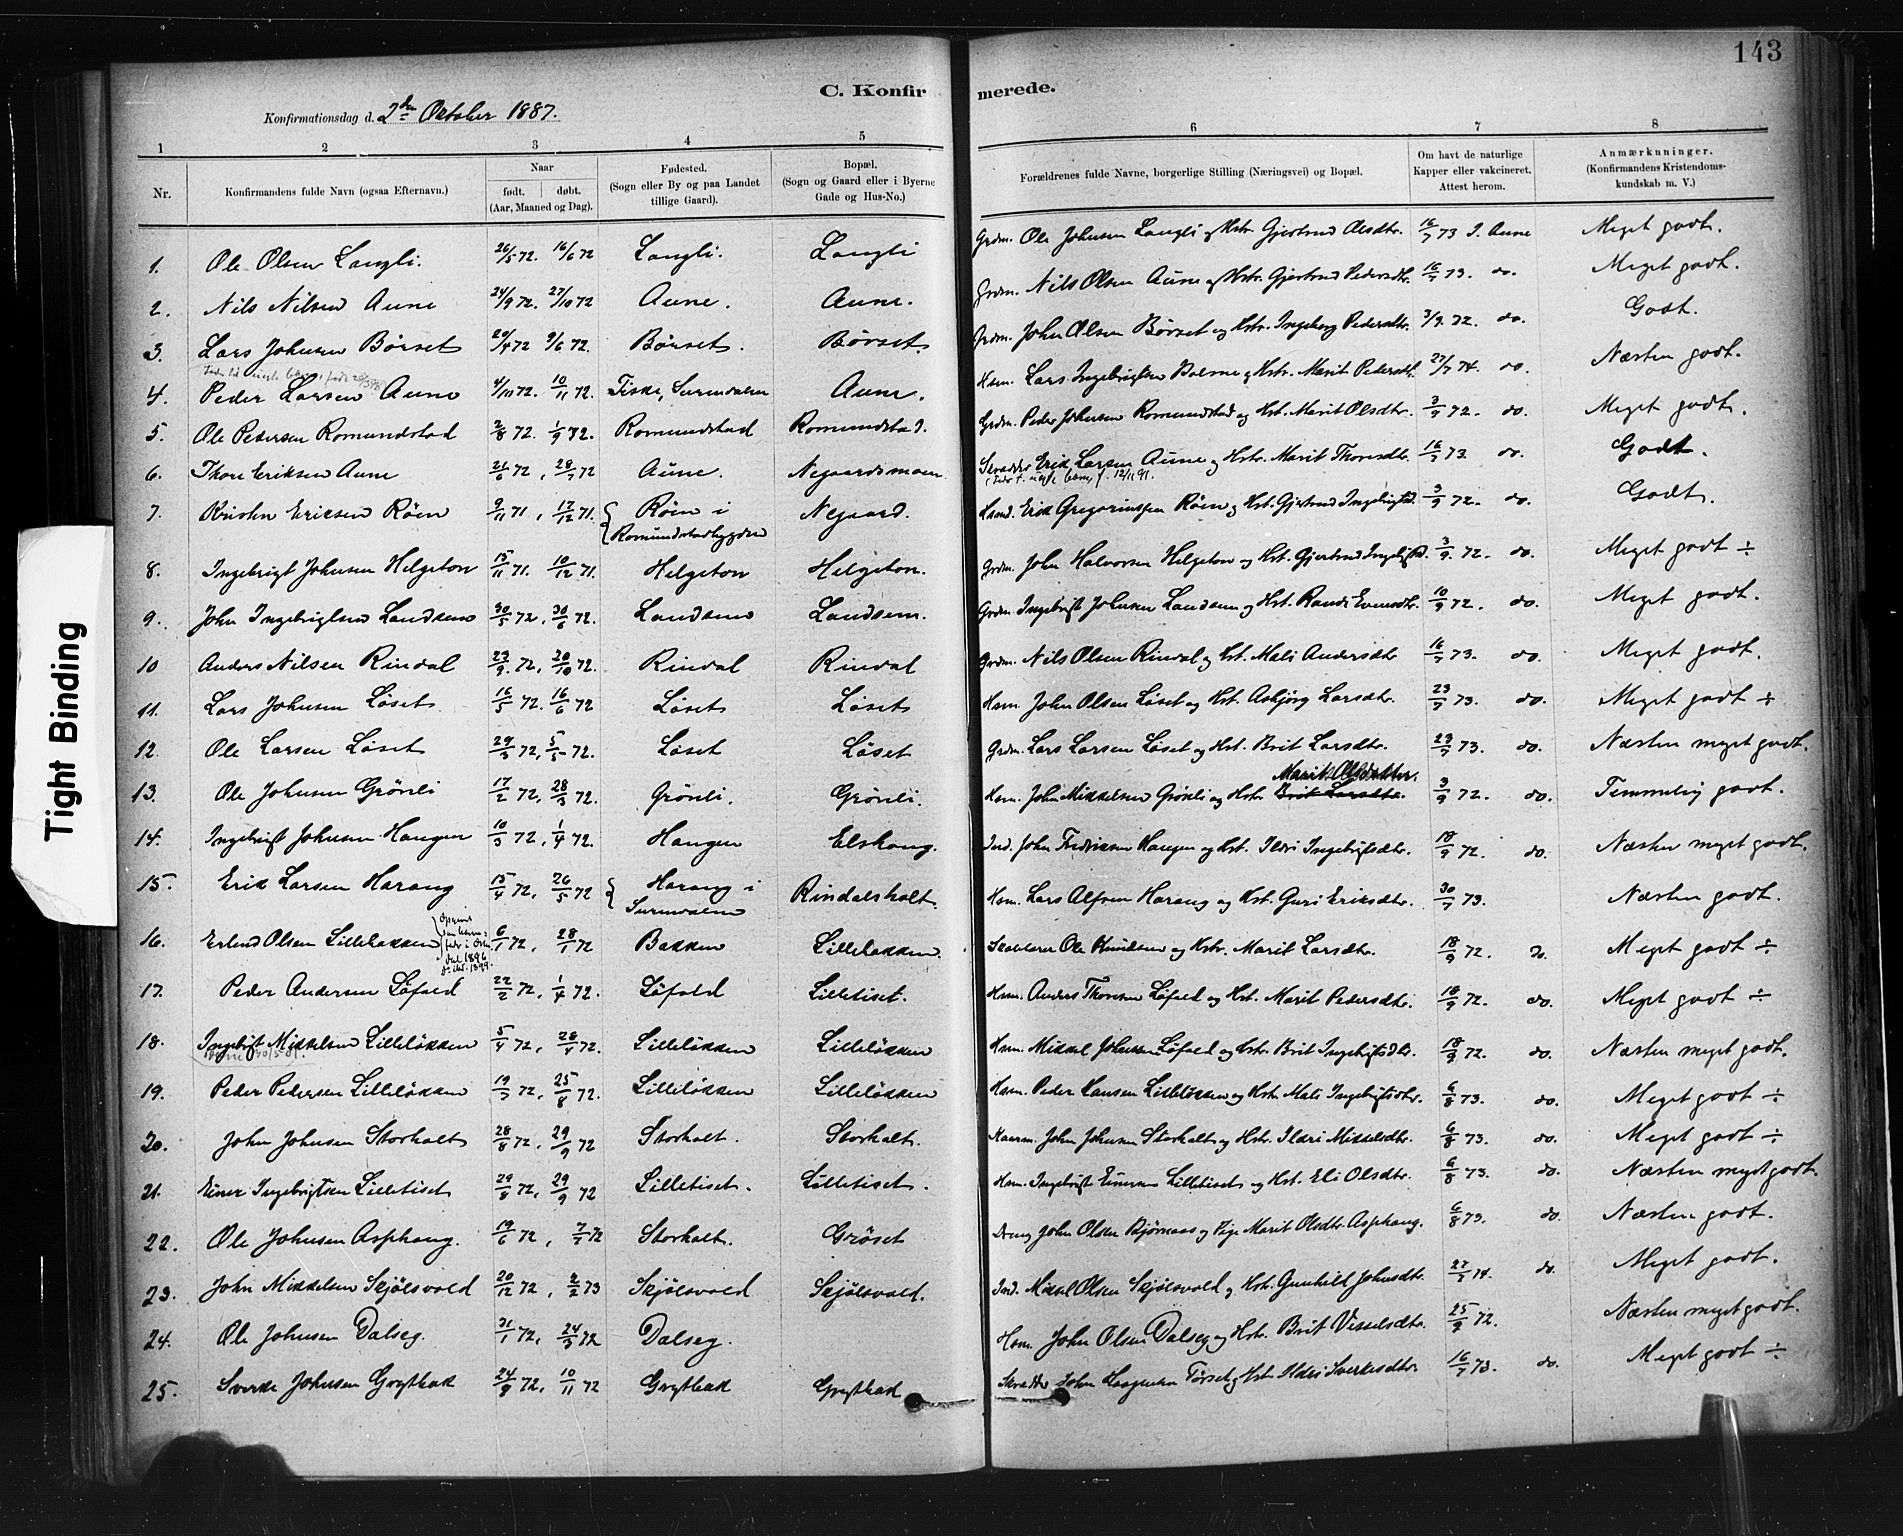 143
C. Konfirmerede.
Konfirmationsdag d. 2den October 1887.
1 2 3 4 5 6 7 8
Nr.
Konfirmandens fulde Navn (ogsaa Efternavn.)
Naar
født. døbt.
(Aar, Maaned og Dag).
Fødested.
(Sogn eller By og paa Landet
tillige Gaard).
Bopæl.
(Sogn og Gaard eller i Byerne
Gade og Hus-No.)
Forældrenes fulde Navne, borgerlige Stilling (Næringsvei) og Bopæl.
Om havt de naturlige
Kapper eller vakcineret.
Attest herom.
Anmærkninger.
(Konfirmandens Kristendoms-
kundskab m. V.)
1. Ole Olsen Langli. 26/5 72. 16/6 72 Langli. Langli Grdm. Ole Johnsen Langli og Hstr. Gjertrud Olsdtr. 16/7 73 I. Aune Meget godt.
2. Nils Nilsen Aune 24/9 72. 27/10 72 Aune. Aune. Grdm. Nils Olsen Aune og Hstr. Gjertrud Pedersdtr. 16/7 73. do. Meget godt.
3. Lars Johnsen Børset 20/4 72 9/6 72. Børset. Børset. Grdm. John Olsen Børset og Hstr. Ingeborg Pedersdtr. 3/9. 72. do. Godt.
4. Peder Larsen Aune 4/10 72. 10/11 72. Fiske, Surendalen Aune. Hsm. Lars Ingebrigtsen Bolme og Hstr. Marit Pedersdtr. 27/7 74. do. Næsten godt.
5. Ole Pedersen Romundstad 2/8 72. 1/9 72. Romundstad Romundstad. Grdm. Peder Johnsen Romundstad og Hst. Marit Olsdtr. 3/9 72. do. Meget godt.
6. Thore Eriksen Aune 26/6 72, 28/7 72 Aune. Negaardsmoen Skrædder Erik Larsen Aune og Hstr. Marit Thoresdtr. 16/7 73. do. Godt.
7. Kristen Eriksen Røen 9/11 71, 17/12 71. Røen i Negaard. Land. Erik Gregoriussen Røen og Hst. Gjertrud Ingebrigtsd. 3/9 72. do. Godt.
Romundstadbygden
8. Ingebrigt Johnsen Helgeton 15/11 71. 10/12 71. Helgeton Helgeton. Grdm. John Halvorsen Helgeton og Hst. Gjertrud Ingebrigtsd. 3/9 72. do. Meget godt ÷
9. John Ingebrigtsen Landsem 30/5 72, 30/6 72. Landsem Landsem. Grdm. Ingebrigt Johnsen Landsem og Hst. Randi Evensdtr. 10/9 72. do. Meget godt.
10 Anders Nilsen Rindal 23/9. 72, 20/10 72. Rindal Rindal Grdm. Nils Olsen Rindal og Hst. Mali Andersdtr 16/7 73. do. Meget godt.
11. Lars Johnsen Løset 16/5 72. 16/6 72 Løset Løset Hsm. John Olsen Løset og Hst. Asbjørg Larsdtr. 23/7 73. do. Meget godt ÷
12. Ole Larsen Løset 29/3 72, 5/5 72. Løset Løset Grdm. Lars Larsen Løset og Hst. Brit Larsdtr. 23/7 73. do. Næsten meget godt.
Marit Olsdatter.
13. Ole Johnsen Grönli 17/2 72, 28/3 72. Grönli. Grönli. Hsm. John Mikkelsen Grönli og Hstr. Brit Larsdtr. 3/9 72. do. Temmelig godt.
14. Ingebrigt Johnsen Haugen 10/3 72, 1/4 72. Haugen Elshaug. Ind. John Fredriksen Haugen og Hst. Ildri Ingebrigtsdtr. 18/9 72. do. Næsten meget godt.
15. Erik Larsen Harang 15/4 72, 26/5 72 Harang i Rindalsholt. Hsm. Lars Alfsen Harang og Hst. Guri Eriksdtr. 30/7 73. Næsten godt.
Surendalen
16. Erlend Olsen Lillebakken 6/1 72, 28/1 72 Bakken Lillebakken. Skolelærer Ole Knudsen og Hstr. Marit Larsdtr. 18/9 72. Do. Meget godt ÷
17. Peder Andersen Löfald 22/2 72, 1/4 72. Löfald Lilletiset. Hsm. Anders Thoresen Löfald og Hst. Marit Pedersdtr. 18/9 72. do. Meget godt ÷
18. Ingebrigt Mikkelsen Lilleløkken 5/4 72, 28/4 72. Lilleløkken Lilleløkken Hsm. Mikkel Johnsen Löfald og Hstr. Brit Ingebrigtsdtr. 18/9 72. do. Næsten meget godt.
19. Peder Pedersen Lilleløkken 19/7 72, 25/8 72. Lilleløkken Lilleløkken Hsm. Peder Hansen Lilleløkken og Hst. Mali Ingebrigtsdtr. 6/8 73. do. Meget godt ÷
20. John Johnsen Storholt 28/8 72, 29/9 72 Storholt. Storholt. Kaarm. John Johnsen Storholt og Hst. Ildri Mikkelsdtr. 6/8 73. do. Meget godt ÷
21. Einer Ingebrigtsen Lilletiset 29/8 72, 29/9 72 Lilletiset. Lilletiset. Hsm. Ingebrigt Einersen Lilletiset og Hst. Eli Olsdtr. 6/8 73. do. Næsten meget godt.
22. Ole Johnsen Asphaug. 19/6 72, 7/7 72 Storholt. Grøset Dreng John Olsen Bjørnaas og Pige Marit Olsdtr. Asphaug. 6/8 73. do. Næsten godt.
23. John Mikkelsen Skjølsvold 20/12 72, 2/2 73 Skjølsvold Skjølsvold. Ind. Mikkel Olsen Skjølsvold og Hst. Gunhild Johnsdtr. 27/7 74. do. Meget godt.
24. Ole Johnsen Dalseg. 31/1 72, 24/3 72 Dalseg. Hsm. John Olsen Dalseg og Hstr. Brit Visselsdtr. 25/9 72. Næsten meget godt.
25. Sverke Johnsen Grytbak 24/9 72, 10/11 72 Grytbak Grytbak Skrædder John Haagensen Tørset og Hst. Ildri Sverkesdtr. 16/7 73. do. Meget godt ÷
Tight Binding